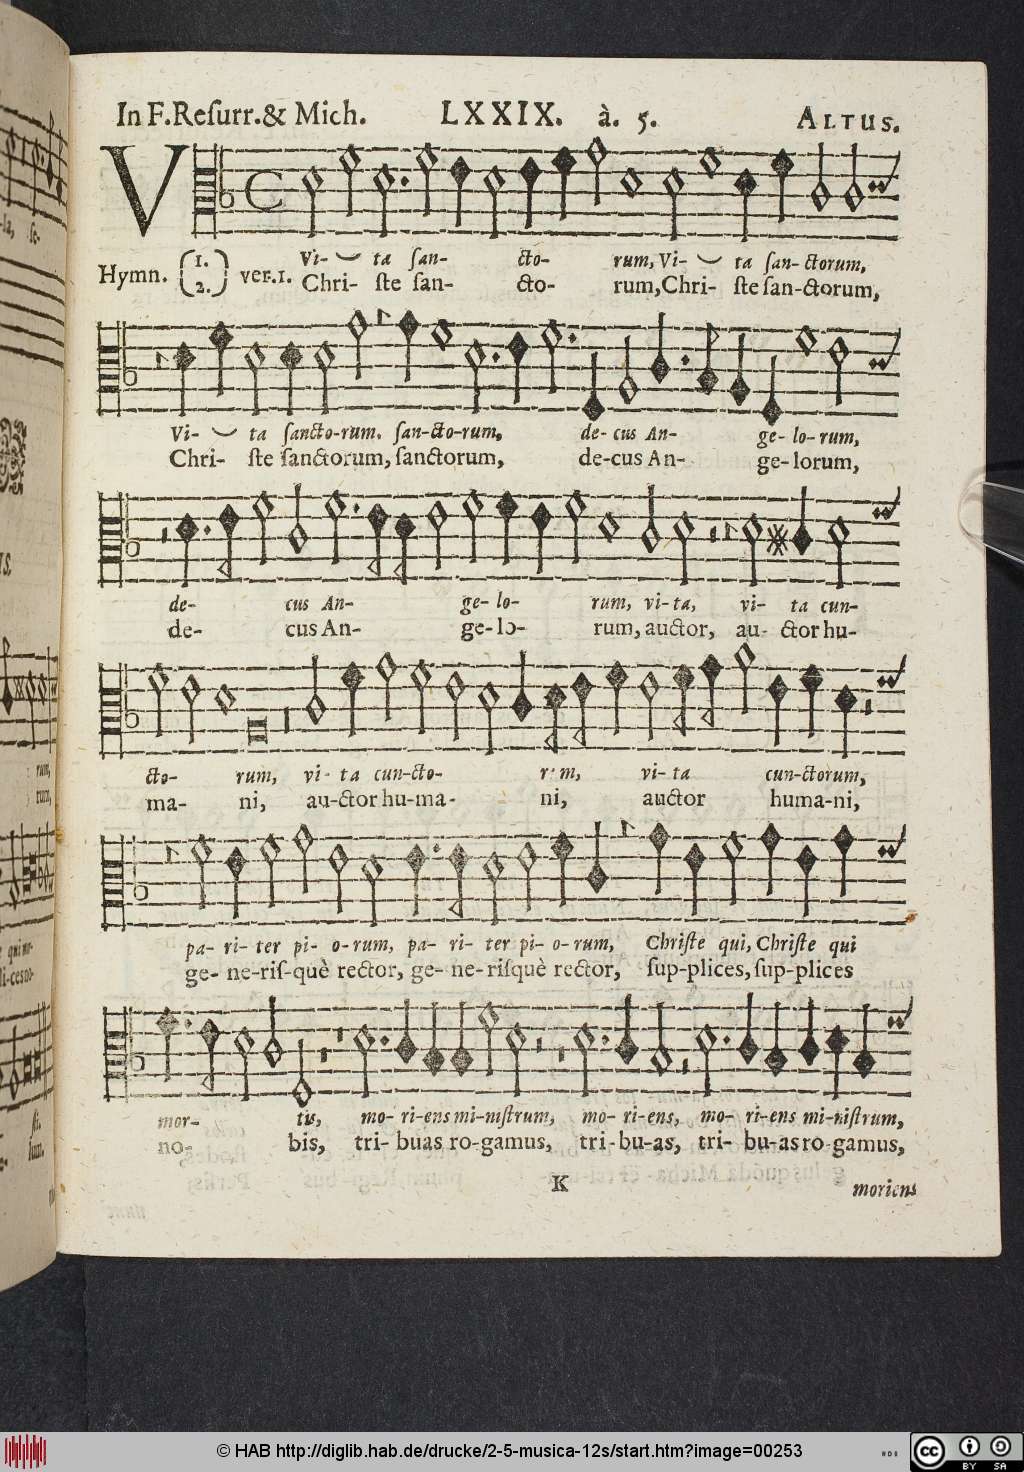 In F. Reſurr. & Mich. LXXIX. à. 5. ALTUS.
V
Vi- ta ſan- cto- rum, Vi- ta ſan-ctorum,
Hymn. (1. 2.) ver.1. Chri- ſte ſan- cto- rum, Chri- ſte ſan-ctorum,
Vi- ta ſancto-rum. ſan-cto-rum, de- cus An- ge- lo- rum,
Chri- ſte ſanctorum, ſanctorum, de-cus An- ge- lorum,
de- cus An- ge- lo- rum, vi- ta, vi- ta cun-
de- cus An- ge- lo- rum, auctor, au- ctor hu-
cto- rum, vi- ta cun-cto- vi- ta cun-ctorum,
ma- ni, au-ctor hu-ma- ni, auctor huma-ni,
pa- ri- ter pi- o-rum, pa- ri- ter pi- o- rum, Chriſte qui, Chriſte qui
ge- ne-riſ-què rector, ge- ne- riſquè rector, ſup-plices, ſup-plices
mor- tis, mo- ri-ens mi-niſtrum, mo- ri-ens, mo- ri-ens mi-niſtrum,
no- bis, tri- buas ro-gamus, tri-bu-as, tri- bu-as ro-gamus,
K moriens
© HAB http://diglib.hab.de/drucke/2-5-musica-12s/start.htm?image=00253
cc BY SA